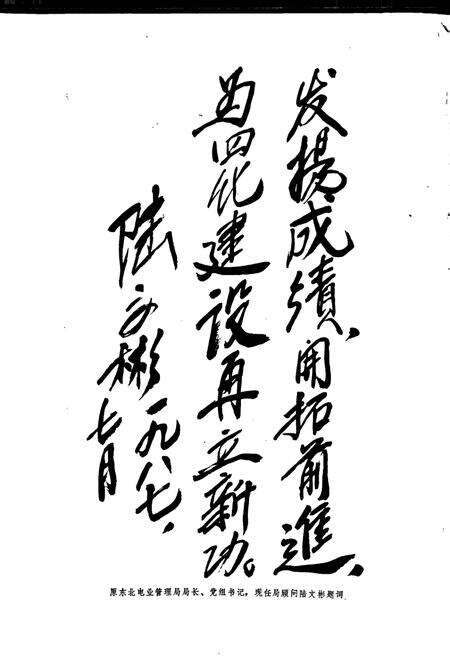 发揚成绩、開拓前進、
为四化建设再立新功。
陆文彬 一九八七、
七月
原东北电业管理局局长、党组书记，现任局顾问陆文彬题词